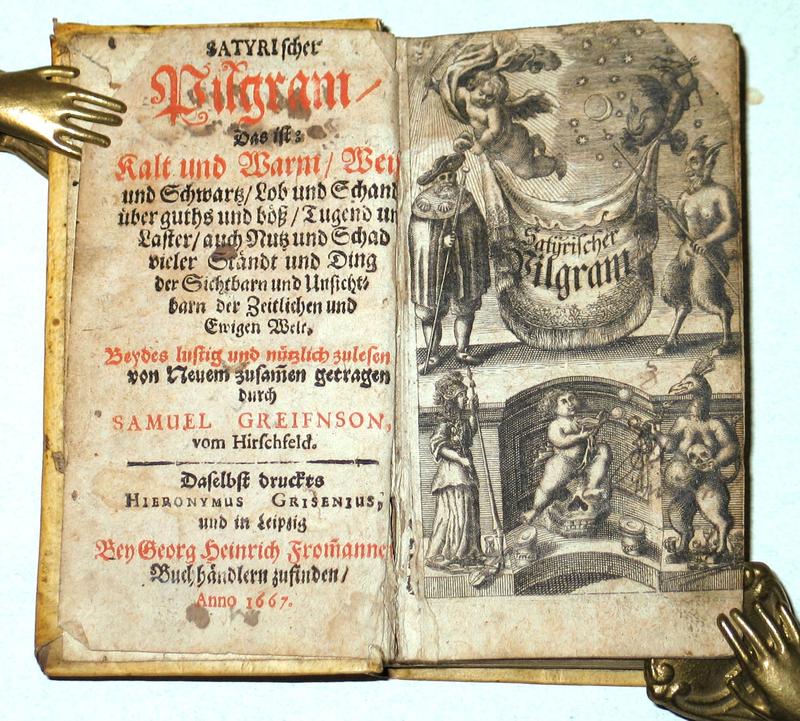 SATYRIscher
Pilgram/
Das ist:
Kalt und Warm/ Wey
und Schwartz/ Lob und Schand
über guths und böß/ Tugend un
Laster/ auch Nutz und Schad
vieler Ständt und Ding
der Sichtbarn und Unsicht-
barn der Zeitlichen und
Ewigen Welt,
Beydes lustig und nützlich zulesen
von Neuem zusam̃en getragen
durch
SAMUEL GREIFNSON,
vom Hirschfeld.
Daselbst druckts
HIERONYMUS GRISENIUS,
und in Leipzig
Bey Georg Heinrich From̃annen
Buchhändlern zufinden/
Anno 1667.
Satyrischer
Pilgram